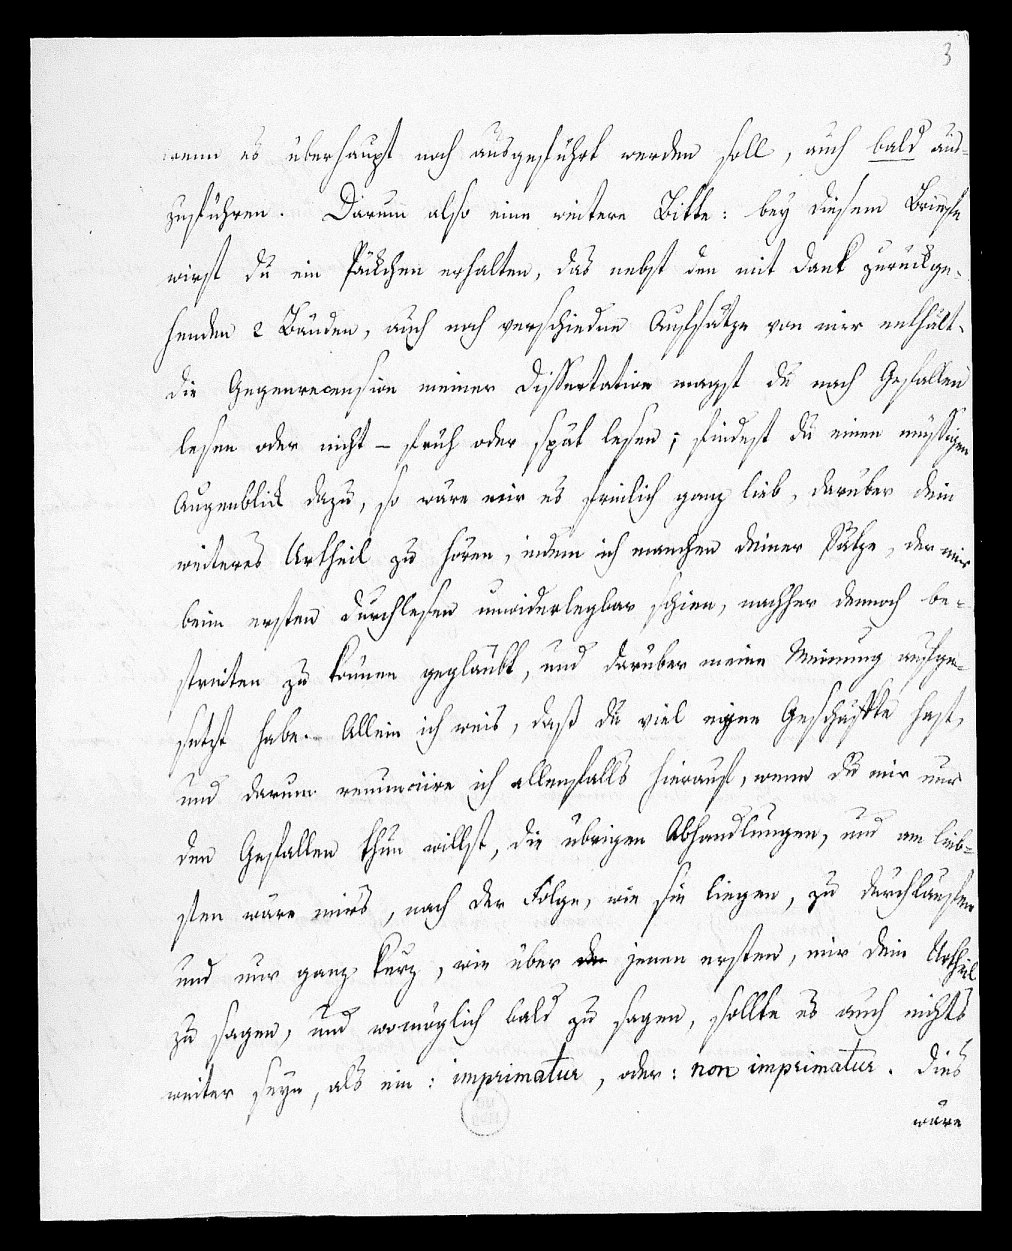 3
wenn es überhaupt noch ausgeführt werden soll, auch bald aus-
zuführen. Darum also eine weitere Bitte: bey diesem Briefe
wirst du ein Päckchen erhalten, das nebst den mit Dank zurückge-
henden 2 Bänden, auch noch verschiedne Aufsätze von mir enthält.
die Gegenrecension meiner Dissertation magst du nach Gefallen
lesen oder nicht – früh oder spät lesen; findest du einen müßigen
Augenblick dazu, so wäre mir es freilich ganz lieb, darüber dein
weiteres Urtheil zu hören, indem ich manchen deiner Sätze, der mir
beim ersten Durchlesen unwiderlegbar schien, nachher dennoch be-
streiten zu können geglaubt, und darüber meine Meinung aufge-
setzt habe. – Allein ich weis, daß du viel eigne Geschäfte hast,
und darum renunciire ich allenfalls hierauf, wenn du mir nur
den Gefallen thun willst, die übrigen Abhandlungen, und am lieb-
sten wäre mirs, nach der Folge, wie sie liegen, zu durchlaufen
und nur ganz kurz, wie über jenen ersten, mir dein Urtheil
zu sagen, und womöglich bald zu sagen, sollte es auch nichts
weiter seyn, als ein: imprimatur, oder: non imprimatur. Dies
wäre